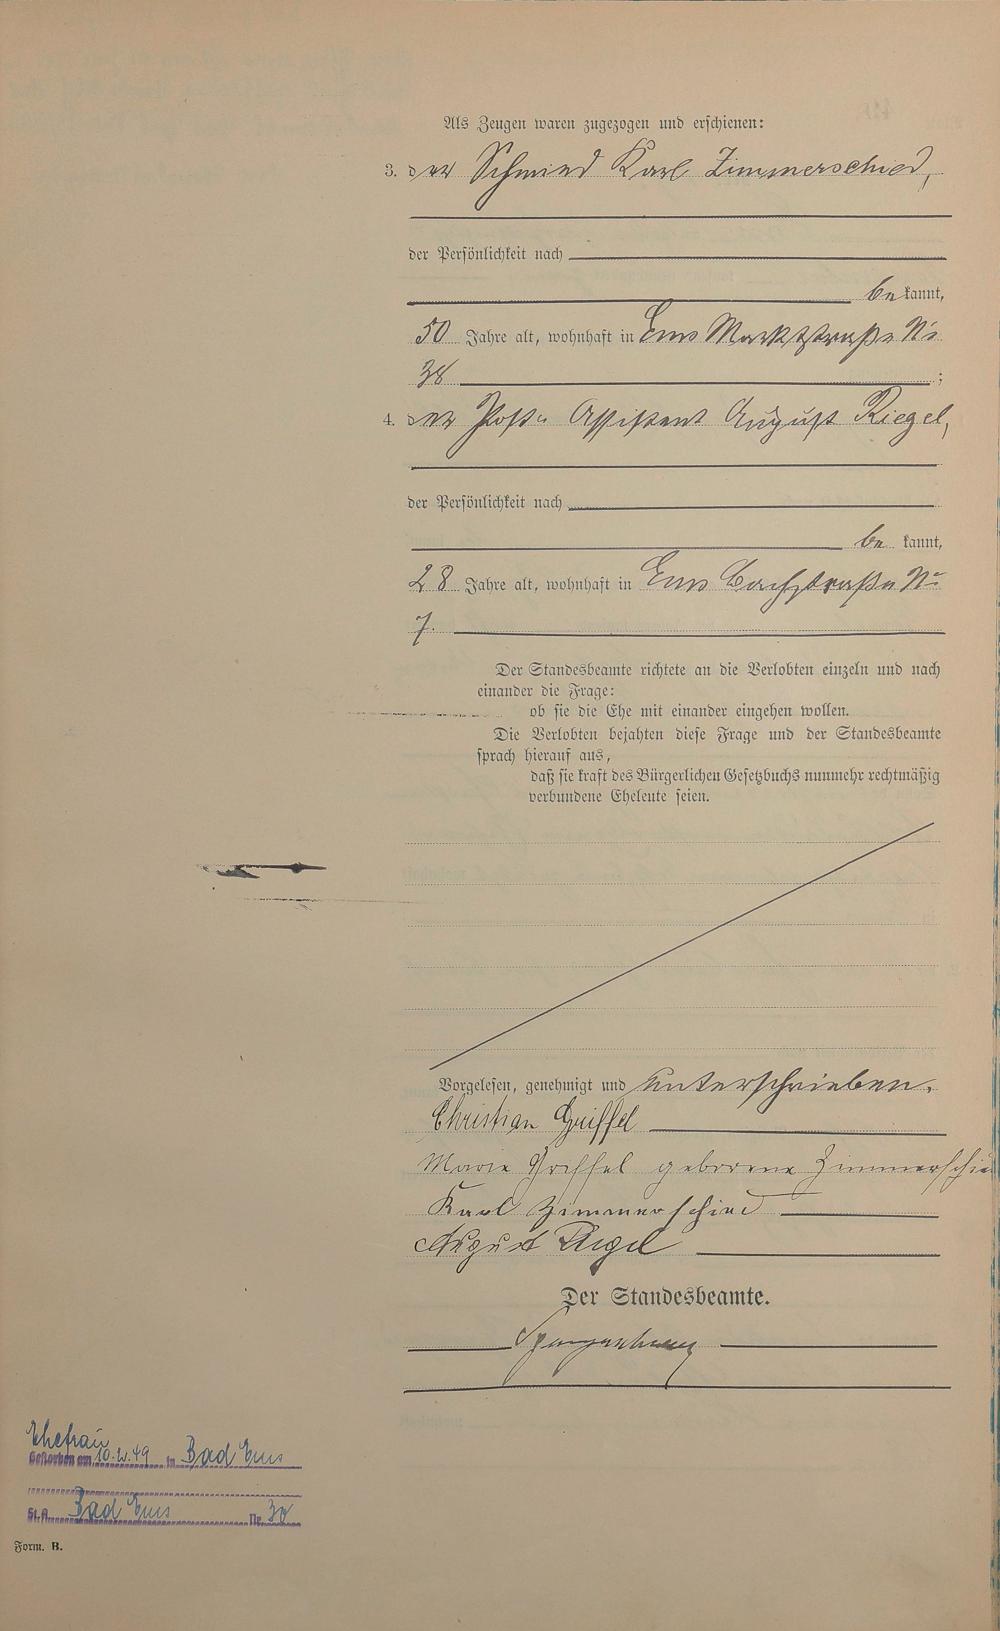 Als Zeugen waren zugezogen und erschienen:
3. der Schmied Karl Zimmerschied,
der Persönlichkeit nach
bekannt,
50 Jahre alt, wohnhaft in Ems Marktstraße No
38 ;
4. der Post-Assistent August Riegel,
der Persönlichkeit nach
be kannt,
28 Jahre alt, wohnhaft in Ems Bachstraße No
7.
Der Standesbeamte richtete an die Verlobten einzeln und nach
einander die Frage:
ob sie die Ehe mit einander eingehen wollen.
Die Verlobten bejahten diese Frage und der Standesbeamte
sprach hierauf aus,
daß sie kraft des Bürgerlichen Gesetzbuchs nunmehr rechtmäßig
verbundene Eheleute seien.
Vorgelesen, genehmigt und unterschrieben.
Christian Griffel
Marie Griffel geborene Zimmerschied
Karl Zimmerschied
August Riegel
Der Standesbeamte.
Ehefrau
Gestorben am 10.2.49 in Bad Ems
St.A. Bad Ems Nr. 30
Form. B.